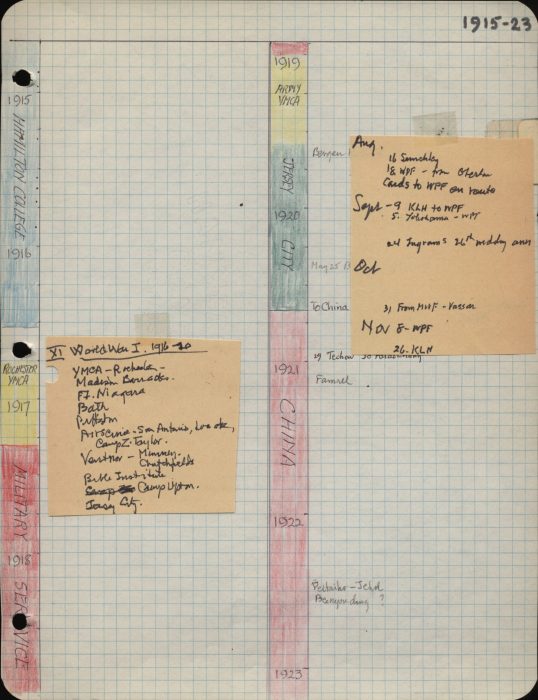 1915-23
1915
HAMILTON COLLEGE
1916
ROCHESTER
YMCA
1917
MILITARY SERVICE
1918
XI World War I. 1916-20
YMCA - Rochester
Madison Barracks.
Ft. Niagara
Bath
Artillery - San Antonio,
Camp Z. Taylor.
Ventnor -
Bible Institute
Camp Upton.
Jersey City.
1919
ARMY
YMCA
JERSEY CITY
1920
CHINA
1921
1922
1923
Bergen
May 25 B
To China
Famrel
Peitaiho - Jehol
?
Aug.
16
18 WPF - from Oberlin
Cards to WPF en route
Sept - 9 KLH to WPF
5. Yokohama - WPF
24 Ingrams 26th wedding ann
Oct
31 From MWF - Vassar
Nov 8 - WPF
26. KLH